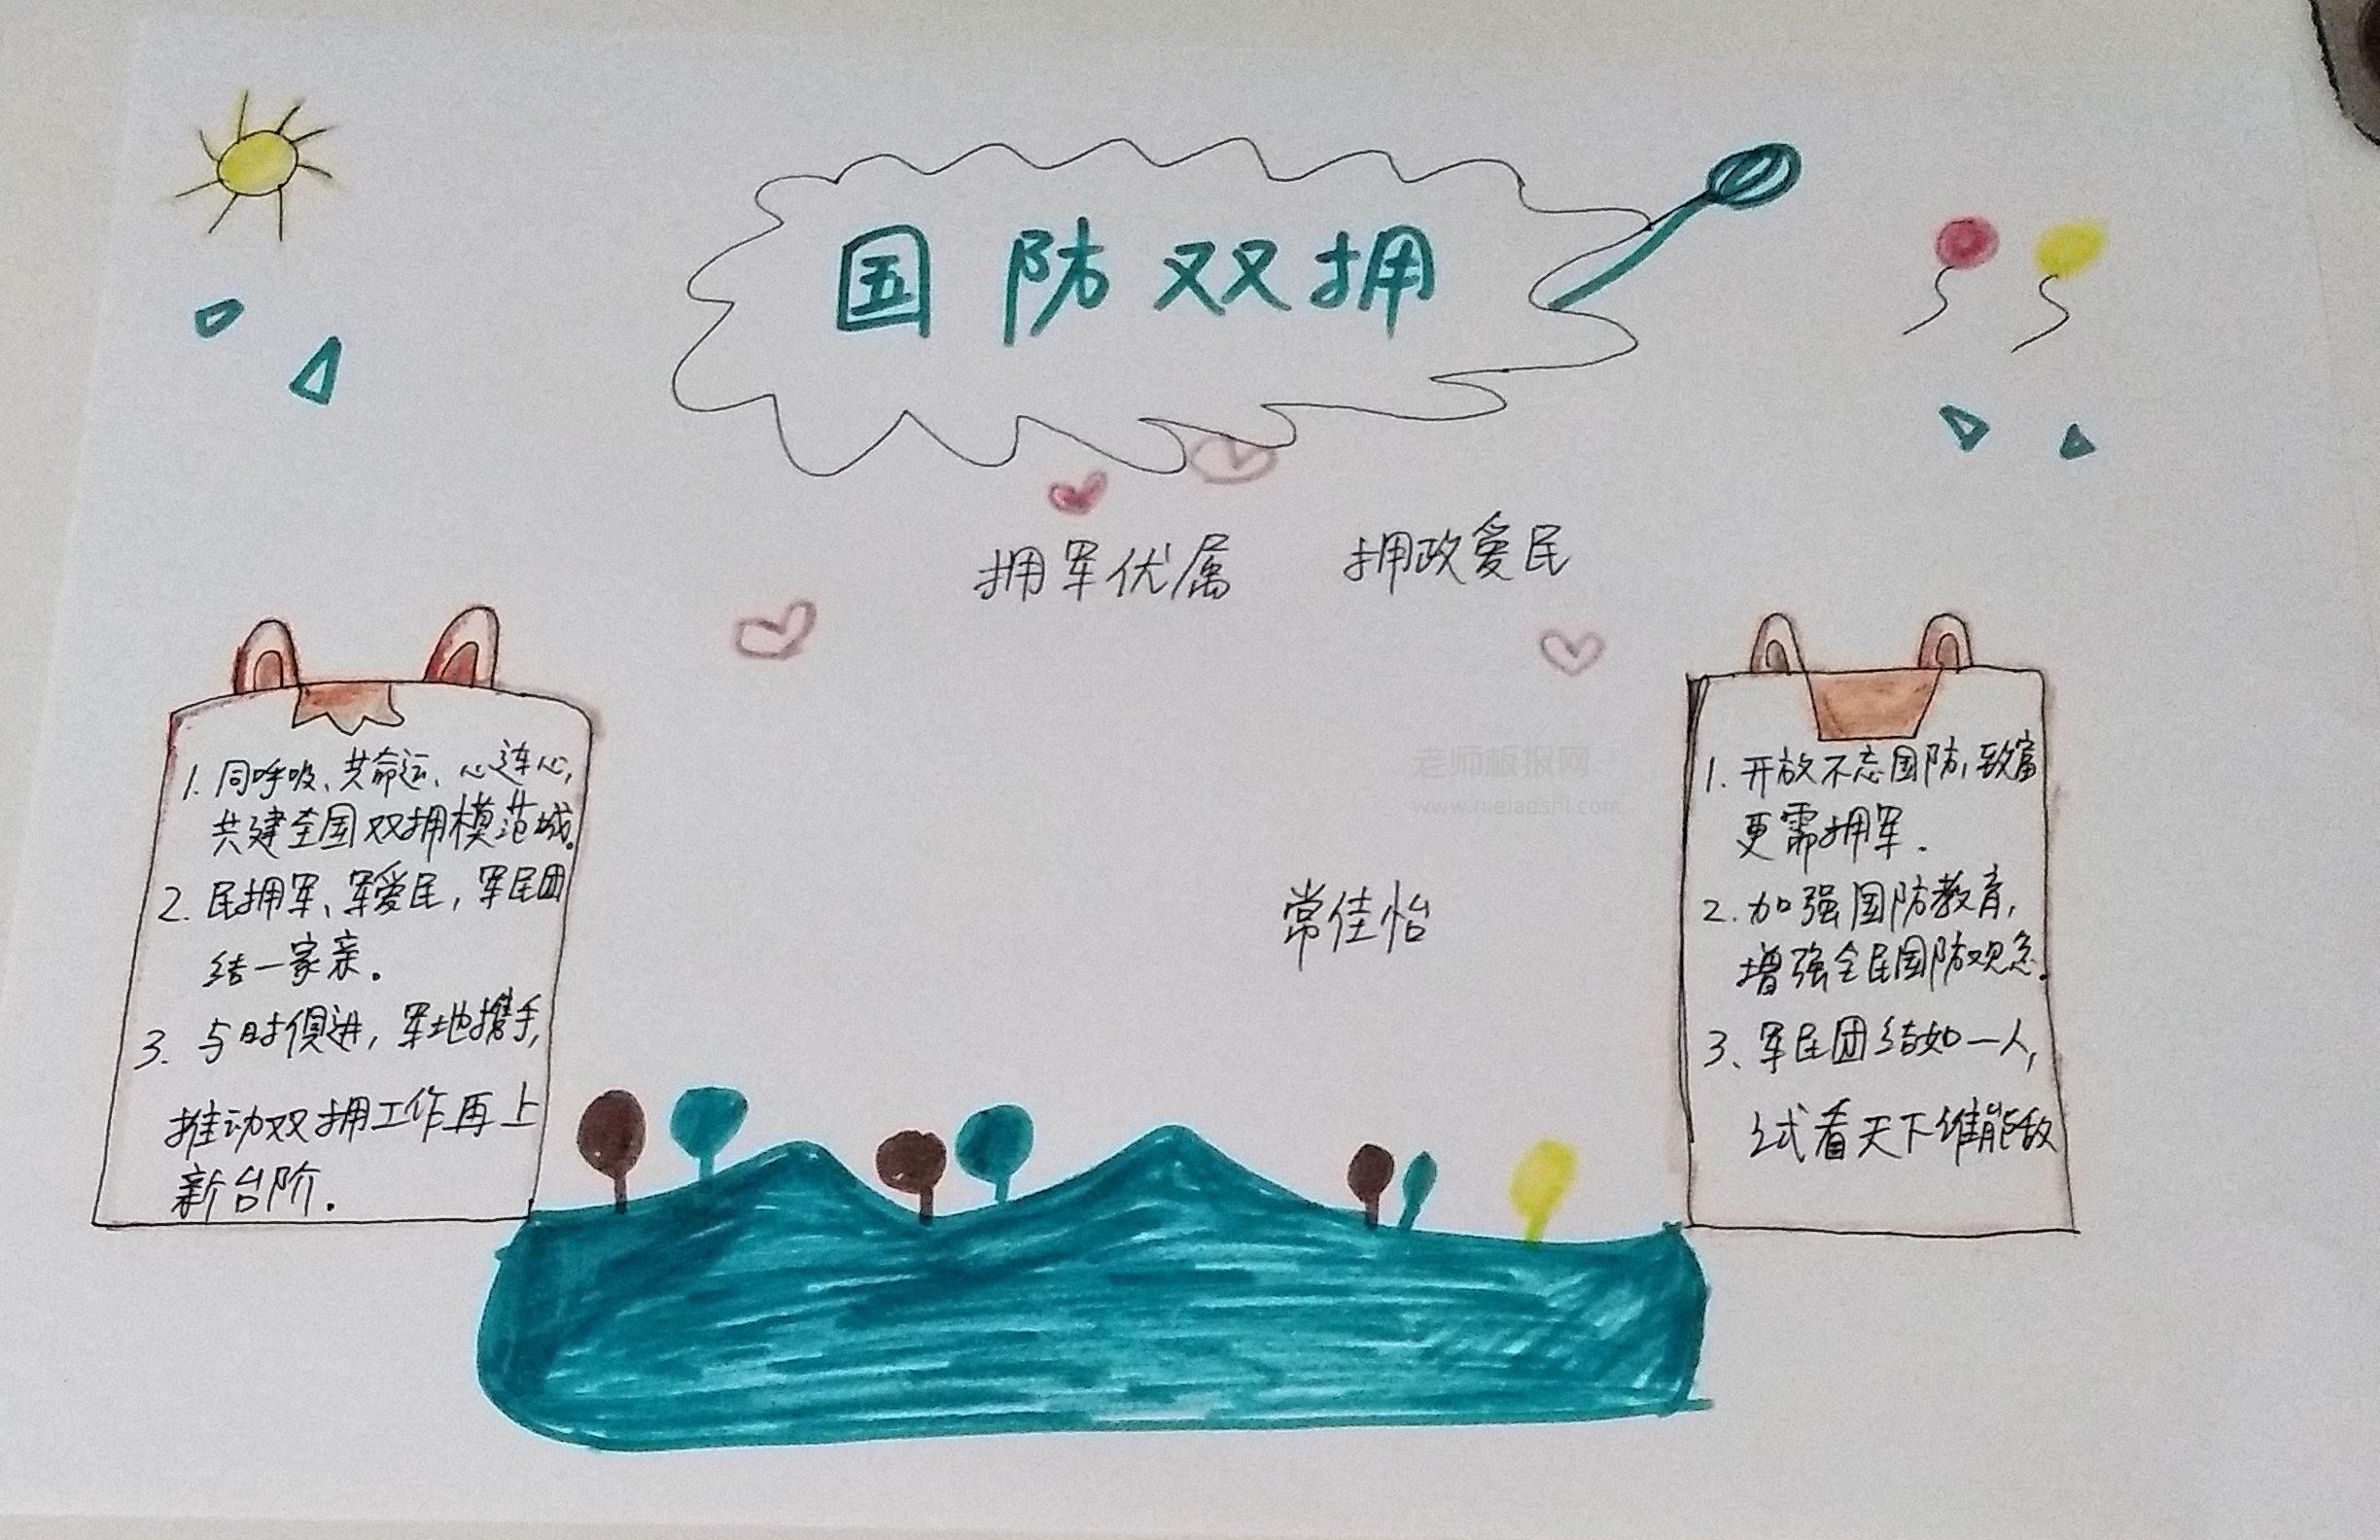 国防双拥
拥军优属 拥政爱民
1. 同呼吸、共命运、心连心,
共建全国双拥模范城。
2. 民拥军、军爱民, 军民团
结一家亲。
3. 与时俱进, 军地携手,
推动双拥工作再上
新台阶.
老师板报网
常佳怡
1. 开放不忘国防, 致富
更需拥军.
2. 加强国防教育,
增强全民国防观念.
3、军民团结如一人,
试看天下谁能敌